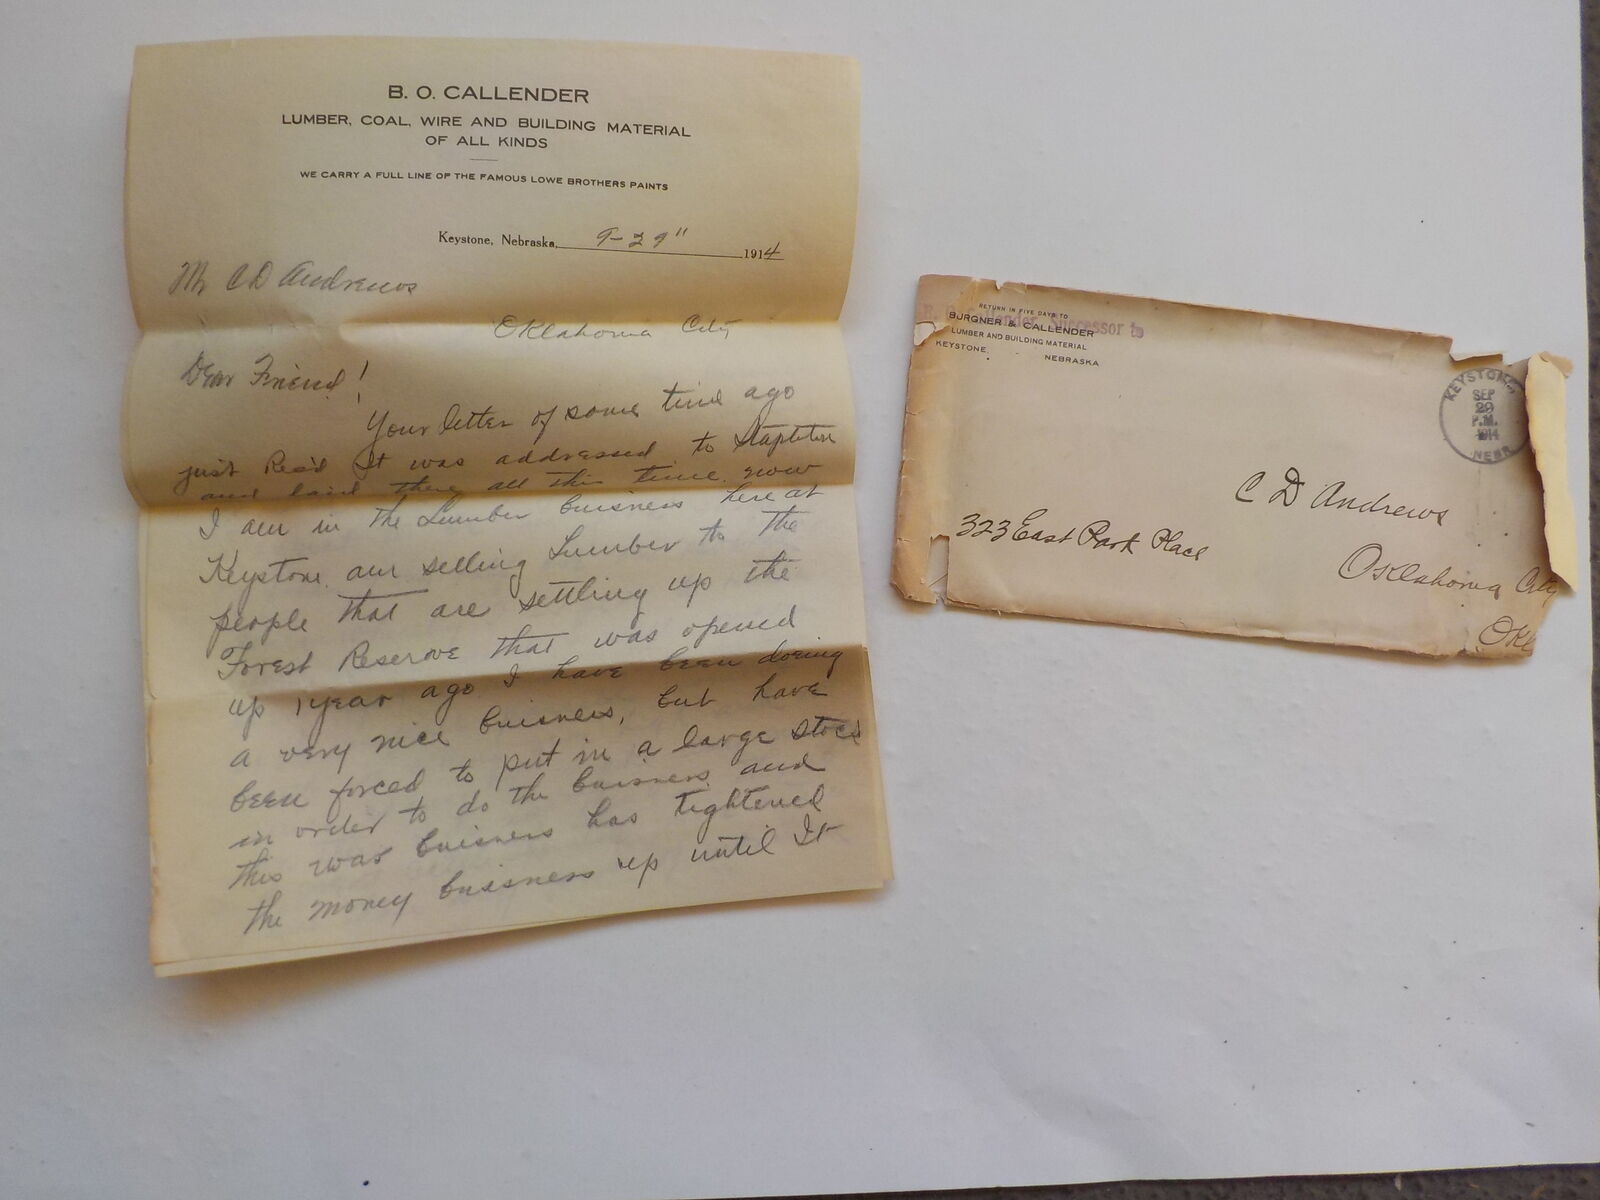 B. O. CALLENDER
LUMBER, COAL, WIRE AND BUILDING MATERIAL
OF ALL KINDS
WE CARRY A FULL LINE OF THE FAMOUS LOWE BROTHERS PAINTS
Keystone, Nebraska, 9-29" 1914
Mr C D Andrews
Oklahoma City
Dear Friend!
Your letter of some time ago
just Rec'd It was addressed to Stapleton
and laid there all this time. now
I am in the Lumber buisness here at
Keystone. am selling Lumber to the
people that are settling up the
Forest Reserve that was opened
up 1 year ago I have been doeing
a very nice buisness, but have
been forced to put in a large stock
in order to do the buisness and
this war buisness has tightened
the money buisness up until It
RETURN IN FIVE DAYS TO
B. O. Callender Successor to
BURGNER & CALLENDER
LUMBER AND BUILDING MATERIAL
KEYSTONE, NEBRASKA
KEYSTONE
SEP
29
P.M.
1914
NEBR.
C D Andrews
323 East Park Place
Oklahoma City
Okl